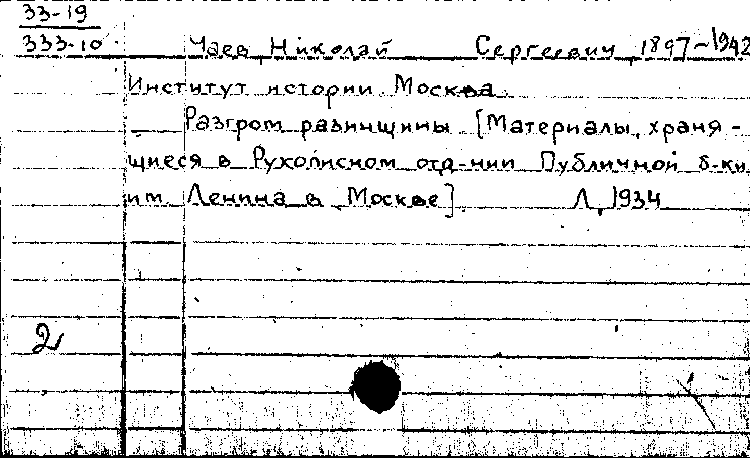 33-19
333-10
Чаев, Николай Сергеевич, 1897-1942
Институт истории. Москва.
Разгром разинщины [Материалы, храня-
щиеся в Рукописном отд-нии Публичной б-ки
им Ленина в Москве] Л, 1934
2